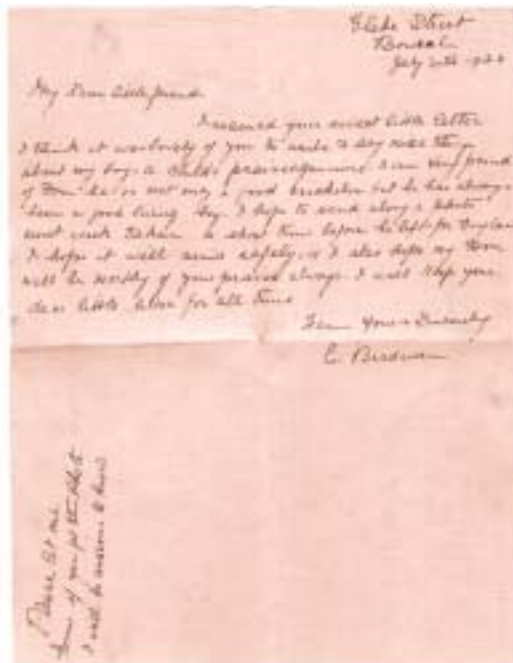 Glebe Street
Bowral
July 1930
My Dear little friend
I received your sweet little letter
I think it was lovely of you to write & say such things
about my boy. a child's praise I am very proud
of Don. he is not only a good cricketer but he has always
been a good living boy. I hope to send along a photo
next week taken a short time before he left for England
I hope it will arrive safely, & I also hope my Don
will be worthy of your praise always. I will keep your
dear little letter for all time
I am Yours Sincerely
E. Bradman
Please let me
know if you get the photo
I will be anxious to know